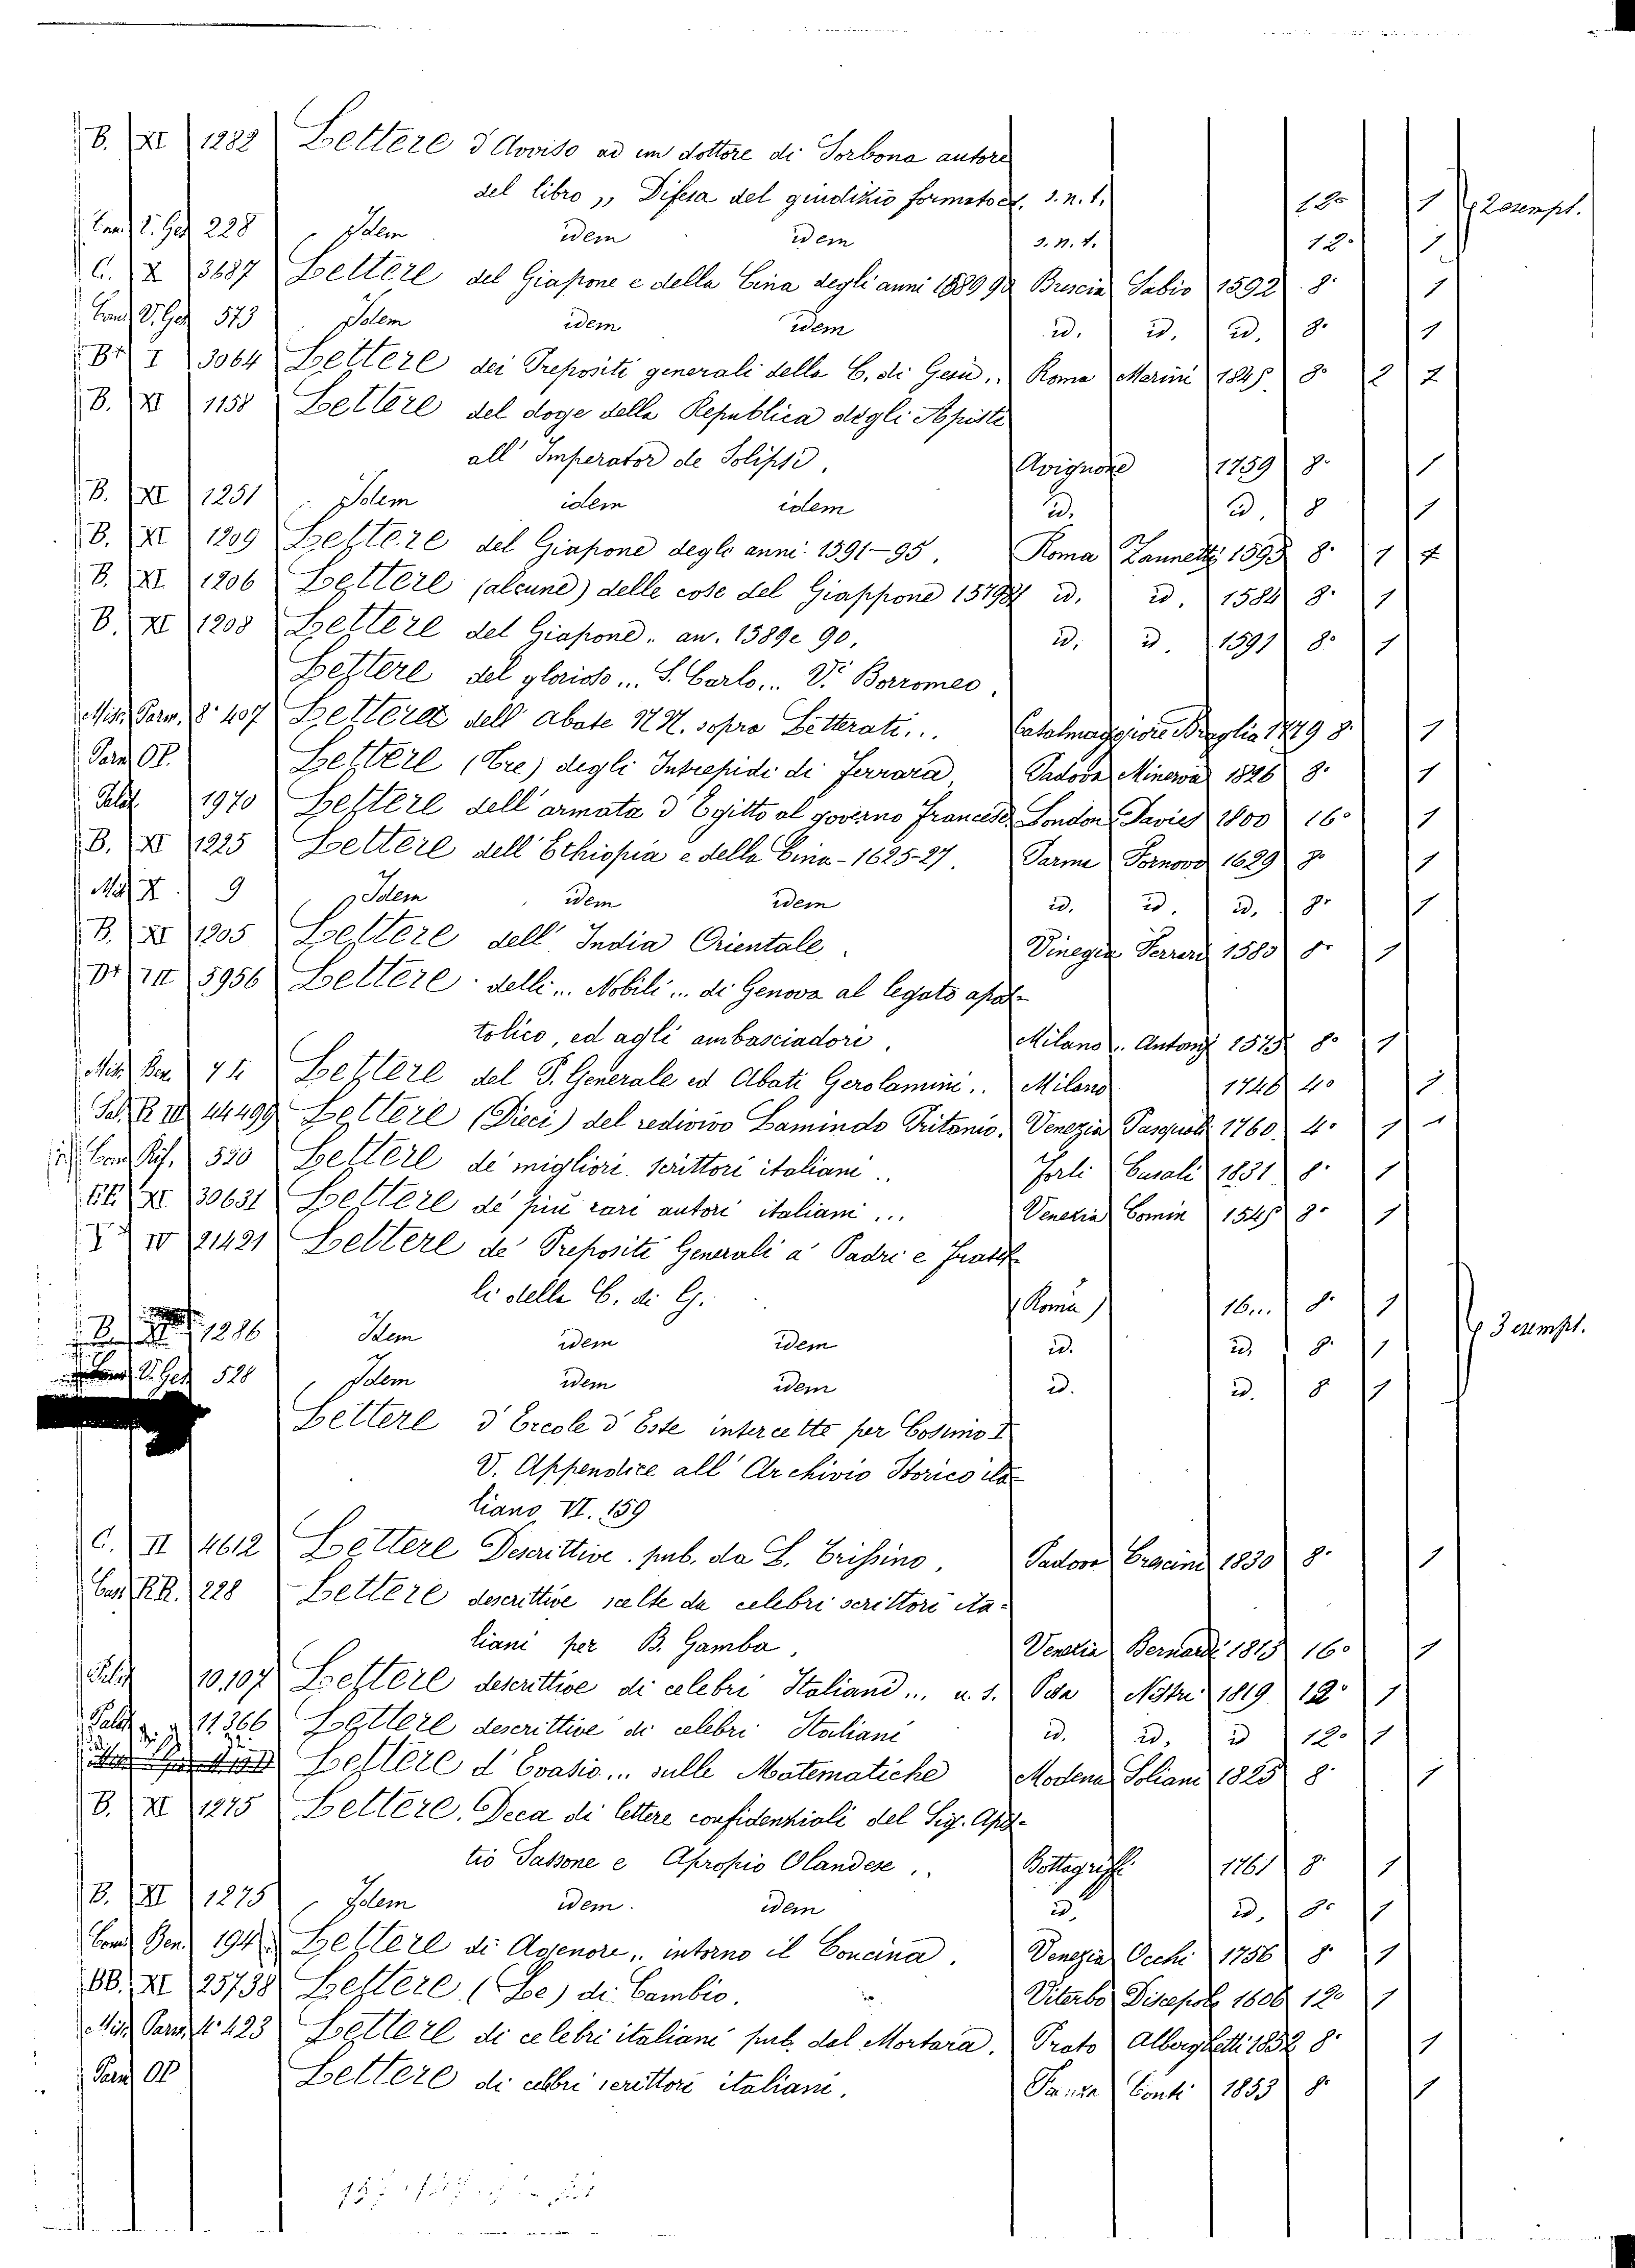 B. XI 1222 Lettere d'Avviso ad un dottore di Sorbona autore
del libro „ Difesa del giudizio formato ec. s. n. t. 12° 1 2 esempl.
Cam. V. Ges. 228 Idem idem idem s. n. t. 12° 1
C. X 3687 Lettere del Giapone e della Cina degli anni 1589 90 Brescia Sabio 1592 8° 1
Cam. V. Ges. 573 Idem idem idem id. id. id. 8° 1
I 3064 Lettere dei Prepositi generali della C. di Gesù .. Roma Marini 1845 8° 2 2
B. XI 1158 Lettere del doge della Republica degli Apisti
all' Imperator de Solipsi, Avignone 1759 8° 1
B. XI 1251 Idem idem idem id. id. 8 1
B. XI 1209 Lettere del Giapone degli anni 1591-95. Roma Zannetti 8° 1
B. XI 1206 Lettere (alcune) delle cose del Giappone id. id. 1584 8° 1
B. XI 1208 Lettere del Giapone .. an. 1589 e 90, id. id. 1591 8° 1
Lettere del glorioso... S. Carlo... V. Borromeo.
Misc. Parm. 8° 407 Lettere dell' abate N. N. sopra Letterati... Casalmaggiore Braglia 8° 1
Parm. OP. Lettere (Tre) degli Intrepidi di Ferrara, Padova Minerva 1826 8° 1
Palat. 1970 Lettere dell' armata d' Egitto al governo Francese London Davies 1800 16° 1
B. XI 1225 Lettere dell' Ethiopia e della Cina - 1625-27. Parma Fornovo 1629 8° 1
X. 9 Idem idem idem id. id. id. 8° 1
B. XI 1205 Lettere dell' India Orientale. Vinegia Ferrari 1580 8° 1
III 5956 Lettere delli... Nobili... di Genova al legato apos-
tolico, ed agli ambasciadori. Milano Antonj 1575 8° 1
Lettere del P. Generale ed Abati Gerolamini.. Milano 1746 4° 1
Pal. III 44499 Lettere (Dieci) del redivivo Lamindo Pritanio. Venezia Pasquali 1760. 4° 1
520 Lettere de' migliori scrittori italiani.. Forlì Casali 1831 8° 1
XI 30631 Lettere de' più rari autori italiani ... Venezia Comin 1545 8° 1
IV 21421 Lettere de' Prepositi Generali a' Padri e Fratel-
li della C. di G. (Roma) 16... 8° 1
1286 Idem idem idem id. id. 8° 1 3 esempl.
V. Ges. 528 Idem idem idem id. id. 8 1
Lettere d' Ercole d' Este intercette per Cosimo I
V. Appendice all' Archivio Storico ita-
liano VI. 159
C. II 4612 Lettere Descrittive pub. da L. Trissino, Padova Crescini 1830 8° 1
228 Lettere descrittive scelte da celebri scrittori ita-
liani per B. Gamba, Venezia Bernardi 1813 16° 1
Palat. 10,107 Lettere descrittive di celebri Italiani... u. s. Pisa Nistri 1819 12° 1
Palat. 11,366 Lettere descrittive di celebri Italiani id. id. id 12° 1
Lettere d' Evasio... sulle Matematiche Modena Soliani 1825 8° 1
B. XI 1275 Lettere. Deca di lettere confidenziali del Sig. Apis-
tio Sassone e Apropio Olandese.. Bottagriffi 1761 8° 1
B. XI 1275 Idem idem. idem id. id. 8° 1
Cam. Ben. 194 Lettere di Agenore .. intorno il Concina. Venezia Occhi 1756 8° 1
BB. XI 25738 Lettere (Le) di Cambio. Viterbo Discepolo 1606 12° 1
Misc. Parm. 4° 423 Lettere di celebri italiani pub. dal Mortara. Prato Alberghetti 1852 8° 1
Parm. OP Lettere di celebri scrittori italiani. Faenza Conti 1853 8° 1